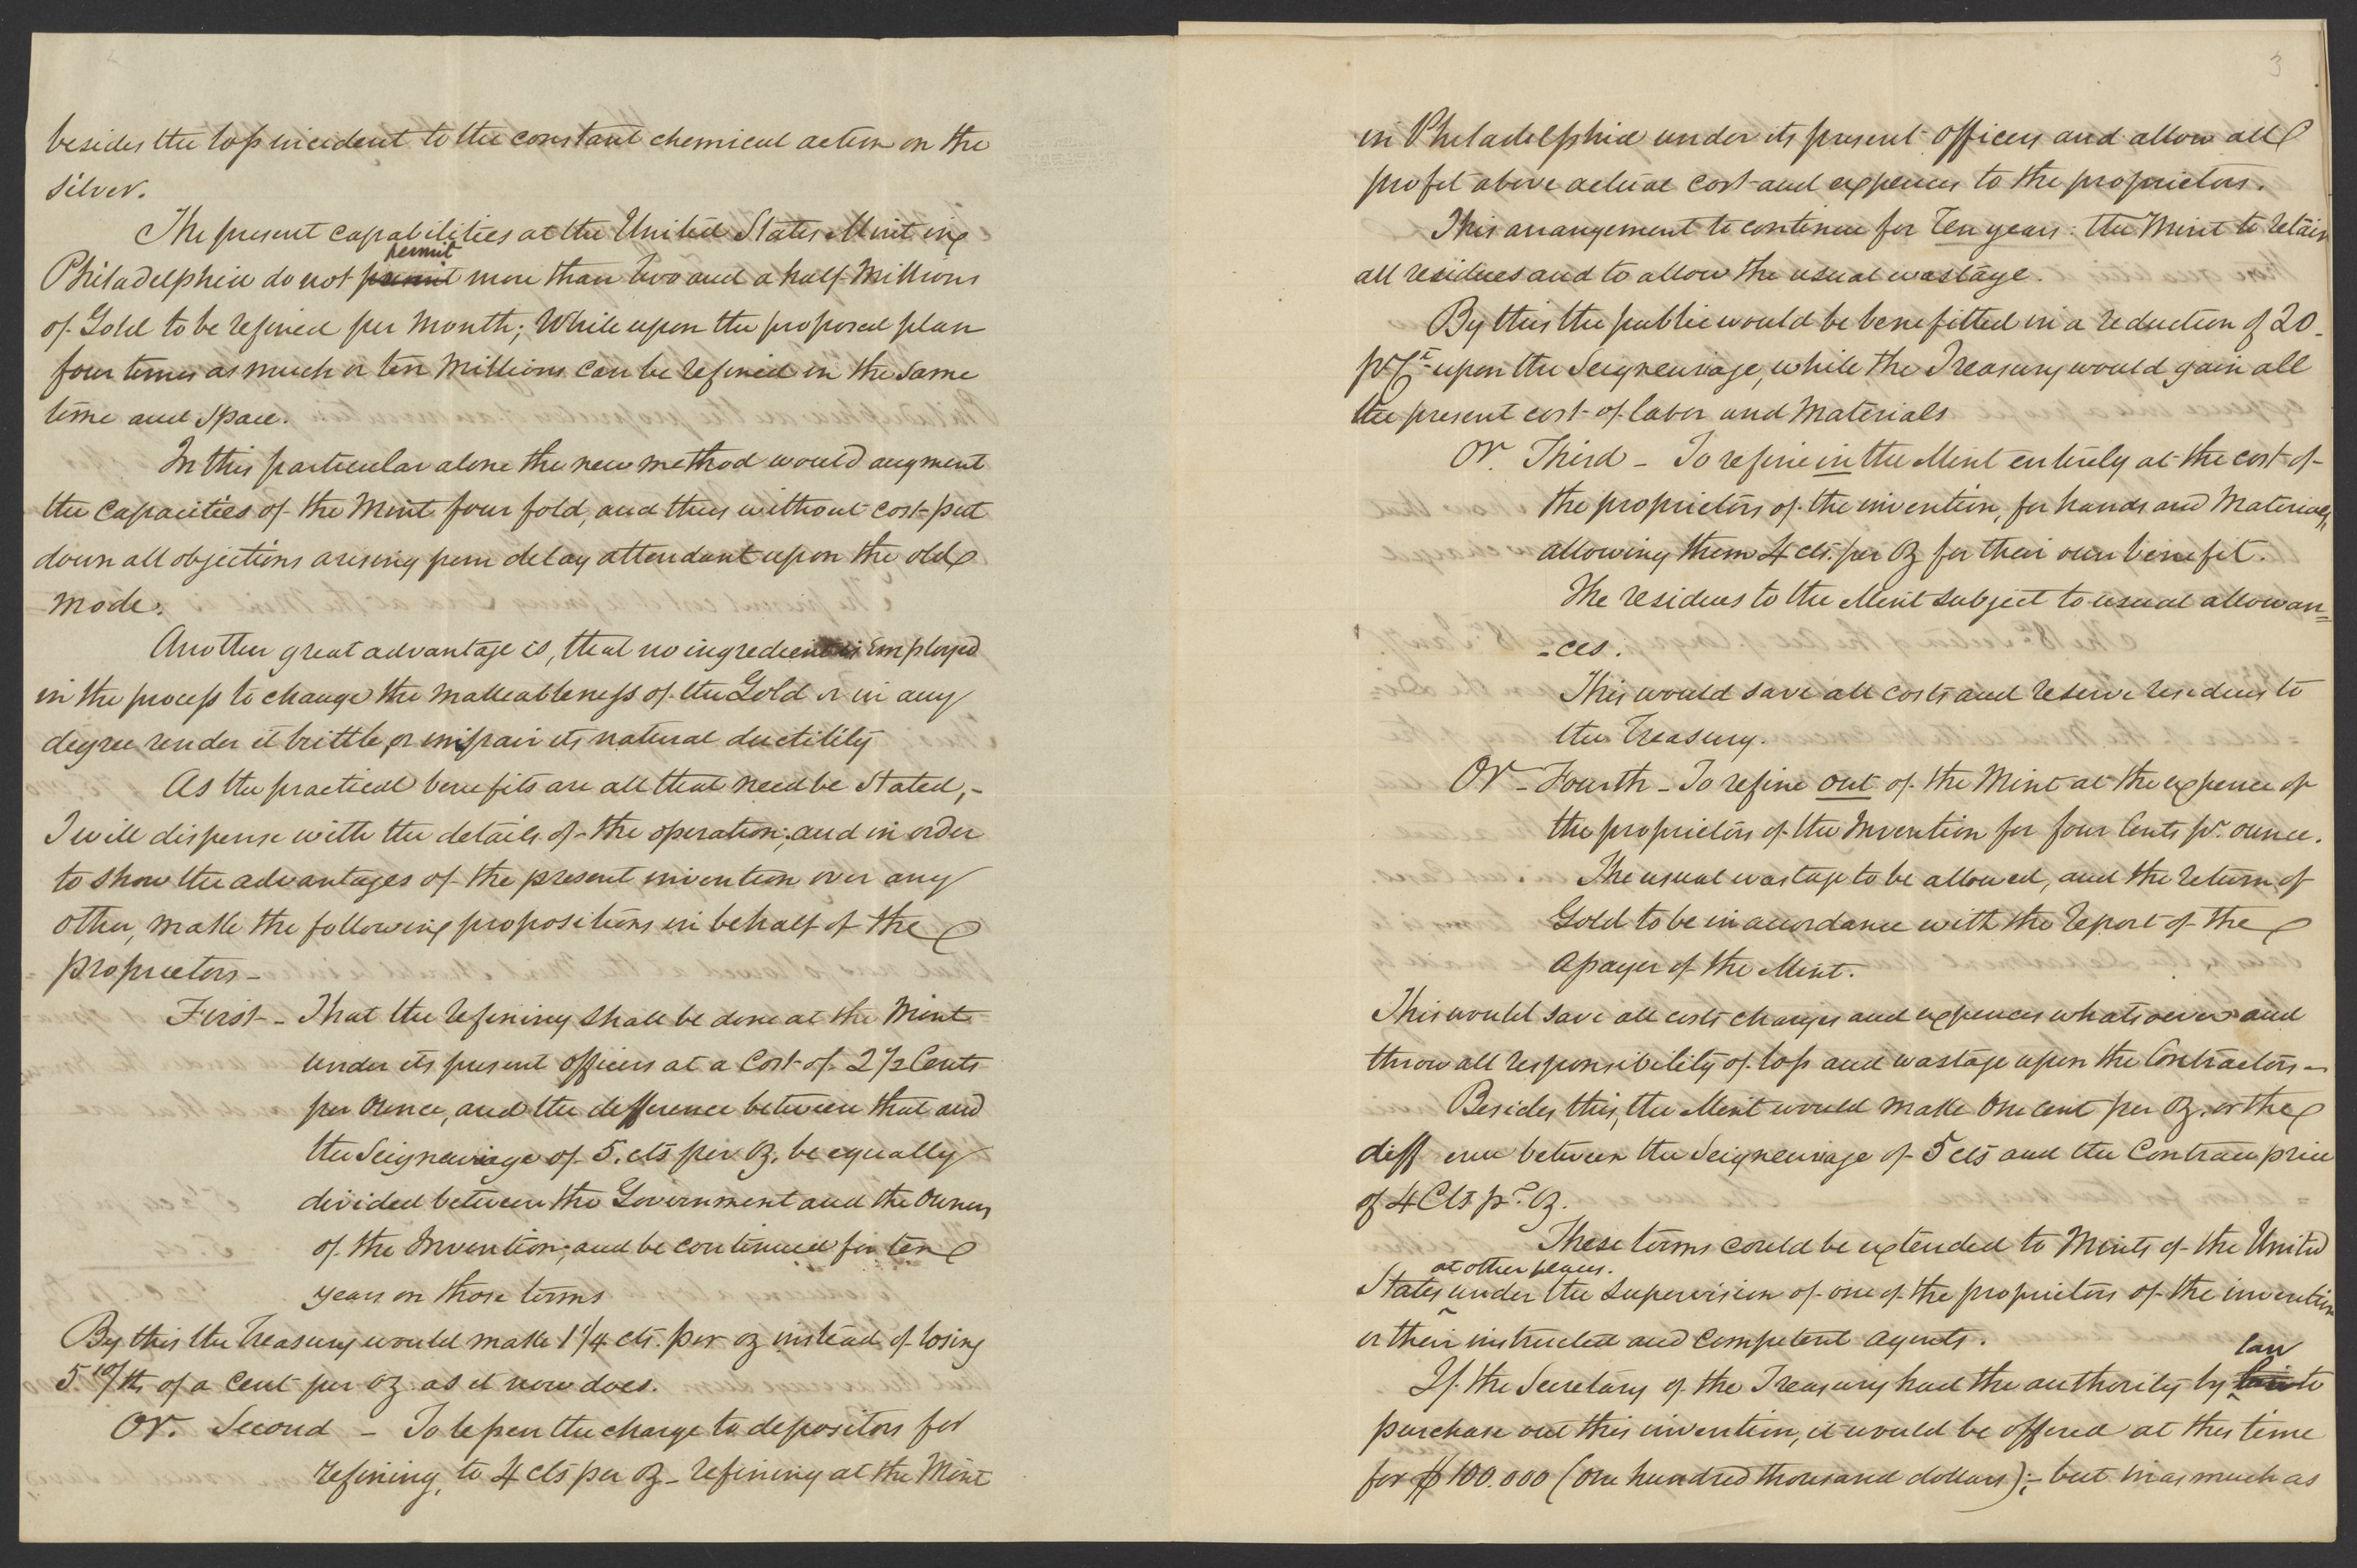 besides the loss incident to the constant chemical action on the
silver.
The present capabilities at the United States Mint in
permit
Philadelphia do not permit more than two and a half Millions
of Gold to be refined per Month; While upon the proposed plan
four times as much or ten Millions can be refined in the same
time and space.
In this particular alone the new method would augment
the capacities of the Mint four fold, and thus without cost put
down all objections arising from delay attendant upon the old
mode.
Another great advantage is, that no ingredient is employed
in the process to change the malleableness of the Gold or in any
degree render it brittle, or impair its natural ductility
As the practical benefits are all that need be stated,-
I will dispense with the details of the operation; and in order
to show the advantages of the present invention over any
other, make the following propositions in behalf of the
proprietors-
First - That the refining shall be done at the Mint
under its present officers at a Cost of 2 1/2 Cents
per Ounce, and the difference between that and
the Seigneuriage of 5. cts per oz. be equally
divided between the Government and the Owners
of the Invention; and be continued for ten
years on those terms
By this the Treasury would make 1 1/4 cts. per oz instead of losing
5 10/ths of a Cent per oz. as it now does.
Or. Second - To lessen the charge to depositors for
refining, to 4 cts per oz - refining at the Mint
3
in Philadelphia under its present officers and allow all
profit above actual cost and expences to the proprietors.
This arrangement to continue for Ten years: the Mint to retain
all residues and to allow the usual wastage.
By this the public would be benefitted in a reduction of 20
pr Ct upon the Seigneuriage, while the Treasury would gain all
the present cost of labor and Materials
Or. Third - To refine in the Mint entirely at the cost of
the proprietors of the invention, for hands and Materials,
allowing them 4 cts. per oz for their own benefit.
The residues to the Mint subject to usual allowan=
-ces.
This would save all costs and reserve residues to
the Treasury.
Or - Fourth - To refine out of the Mint at the expence of
the proprietors of the Invention for four Cents pr. ounce.
The usual wastage to be allowed, and the return of
Gold to be in accordance with the report of the
Assayer of the Mint.
This would save all costs charges and expences whatsoever and
throw all responsibility of loss and wastage upon the Contractors-
Besides this, the Mint would make One cent per oz. or the
diff ence between the Seigneuriage of 5 cts and the Contract price
of 4 Cts pr. oz.
These terms could be extended to Mints of the United
at other places.
States under the supervision of one of the proprietors of the invention
or their instructed and competent agents.
law
If the Secretary of the Treasury had the authority by to
purchase out this invention, it would be offered at this time
for $100.000 (one hundred thousand dollars);- but inasmuch as